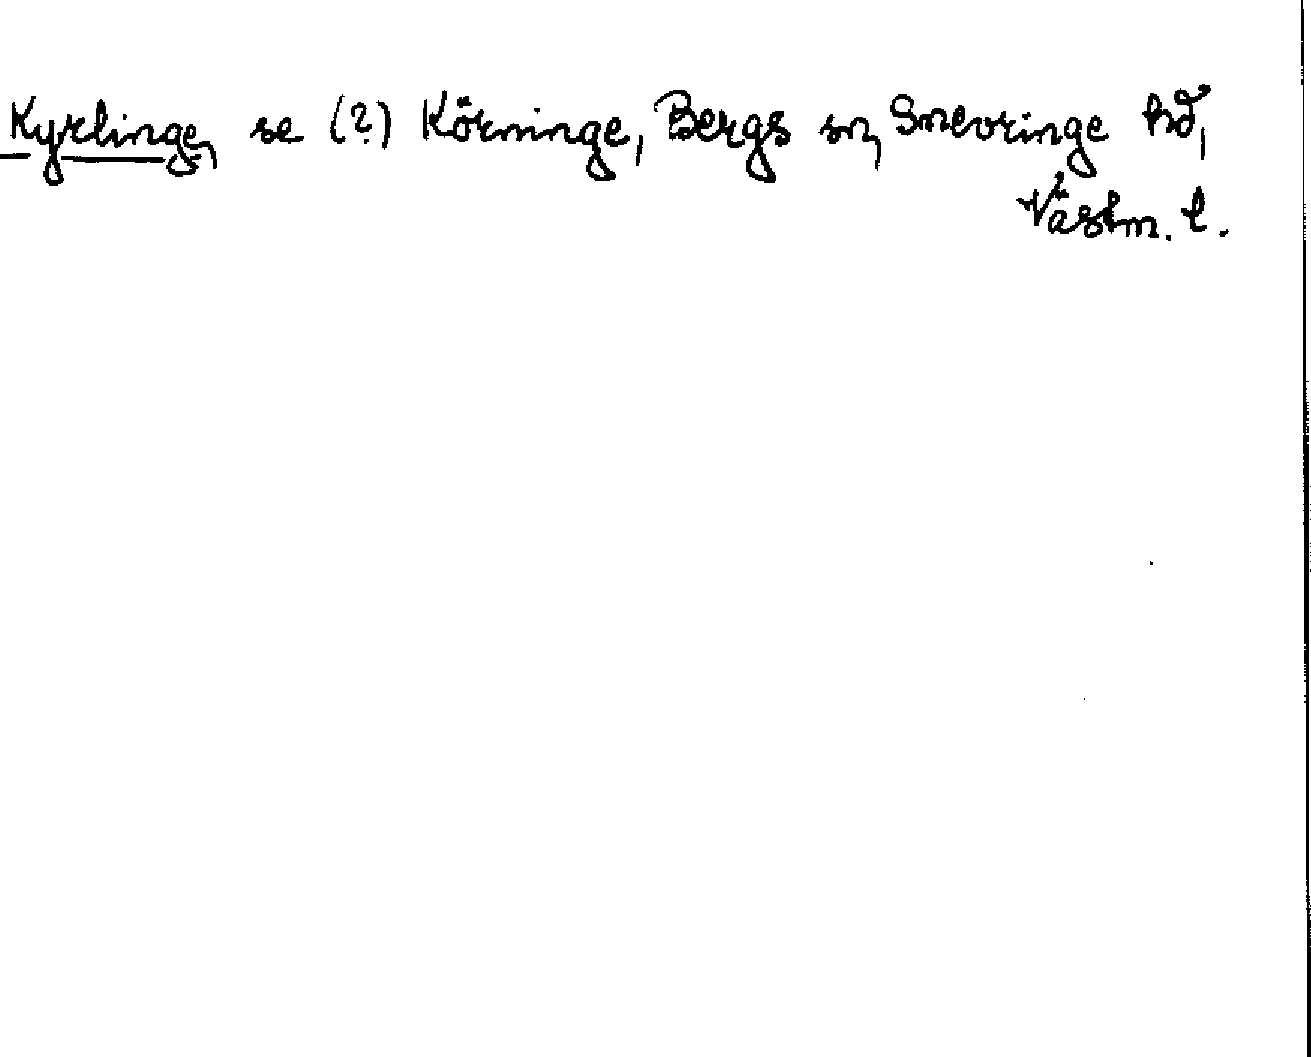 Kyrlinge, se (?) Körninge, Bergs sn, Snevringe hd,
Västm. l.